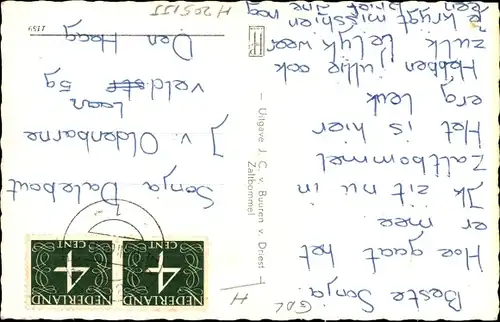 Beste Sonja.
Hoe gaat het
er mee
Ik zit nu in
Zaltbommel
Het is hier
erg leuk
Hebben jullie ook
zulk
weer
Je krijgt misschien nog
een brief
Sonja Dalebout
J v. Oldenbarne
veldst
Laan 59
Den Haag
— Uitgave J. C. v. Buuren v. Driest
Zaltbommel
NEDERLAND
4
CENT
NEDERLAND
4
CENT
H
H205155